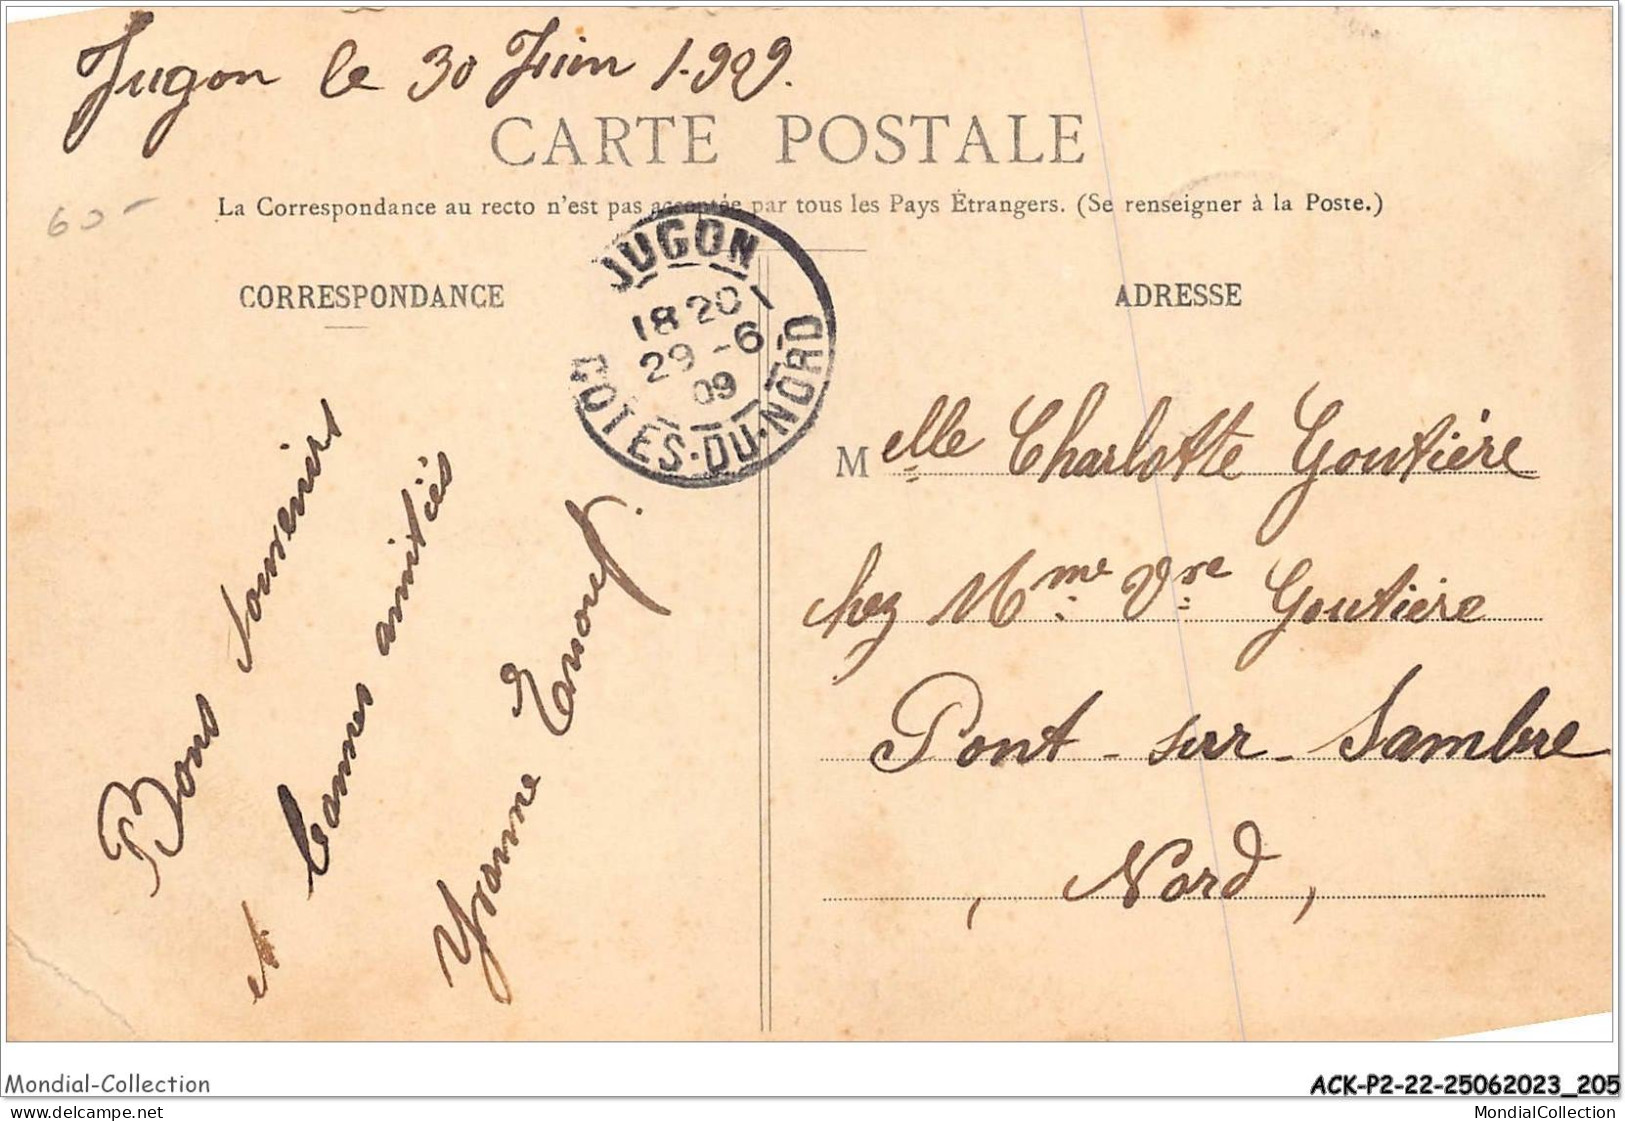 Jugon le 30 Juin 1.909.
CARTE POSTALE
60-
La Correspondance au recto n'est pas acceptée par tous les Pays Étrangers. (Se renseigner à la Poste.)
CORRESPONDANCE
JUGON
18 20
29 -6
09
COTES-DU-NORD
Bons souvenirs
et bonnes amitiés
Yvonne Ernouf.
ADRESSE
Melle Charlotte Goutière
chez Mme Vve Goutière
Pont-sur-Sambre
, Nord,
Mondial-Collection
ACK-P2-22-25062023_205
www.delcampe.net
MondialCollection